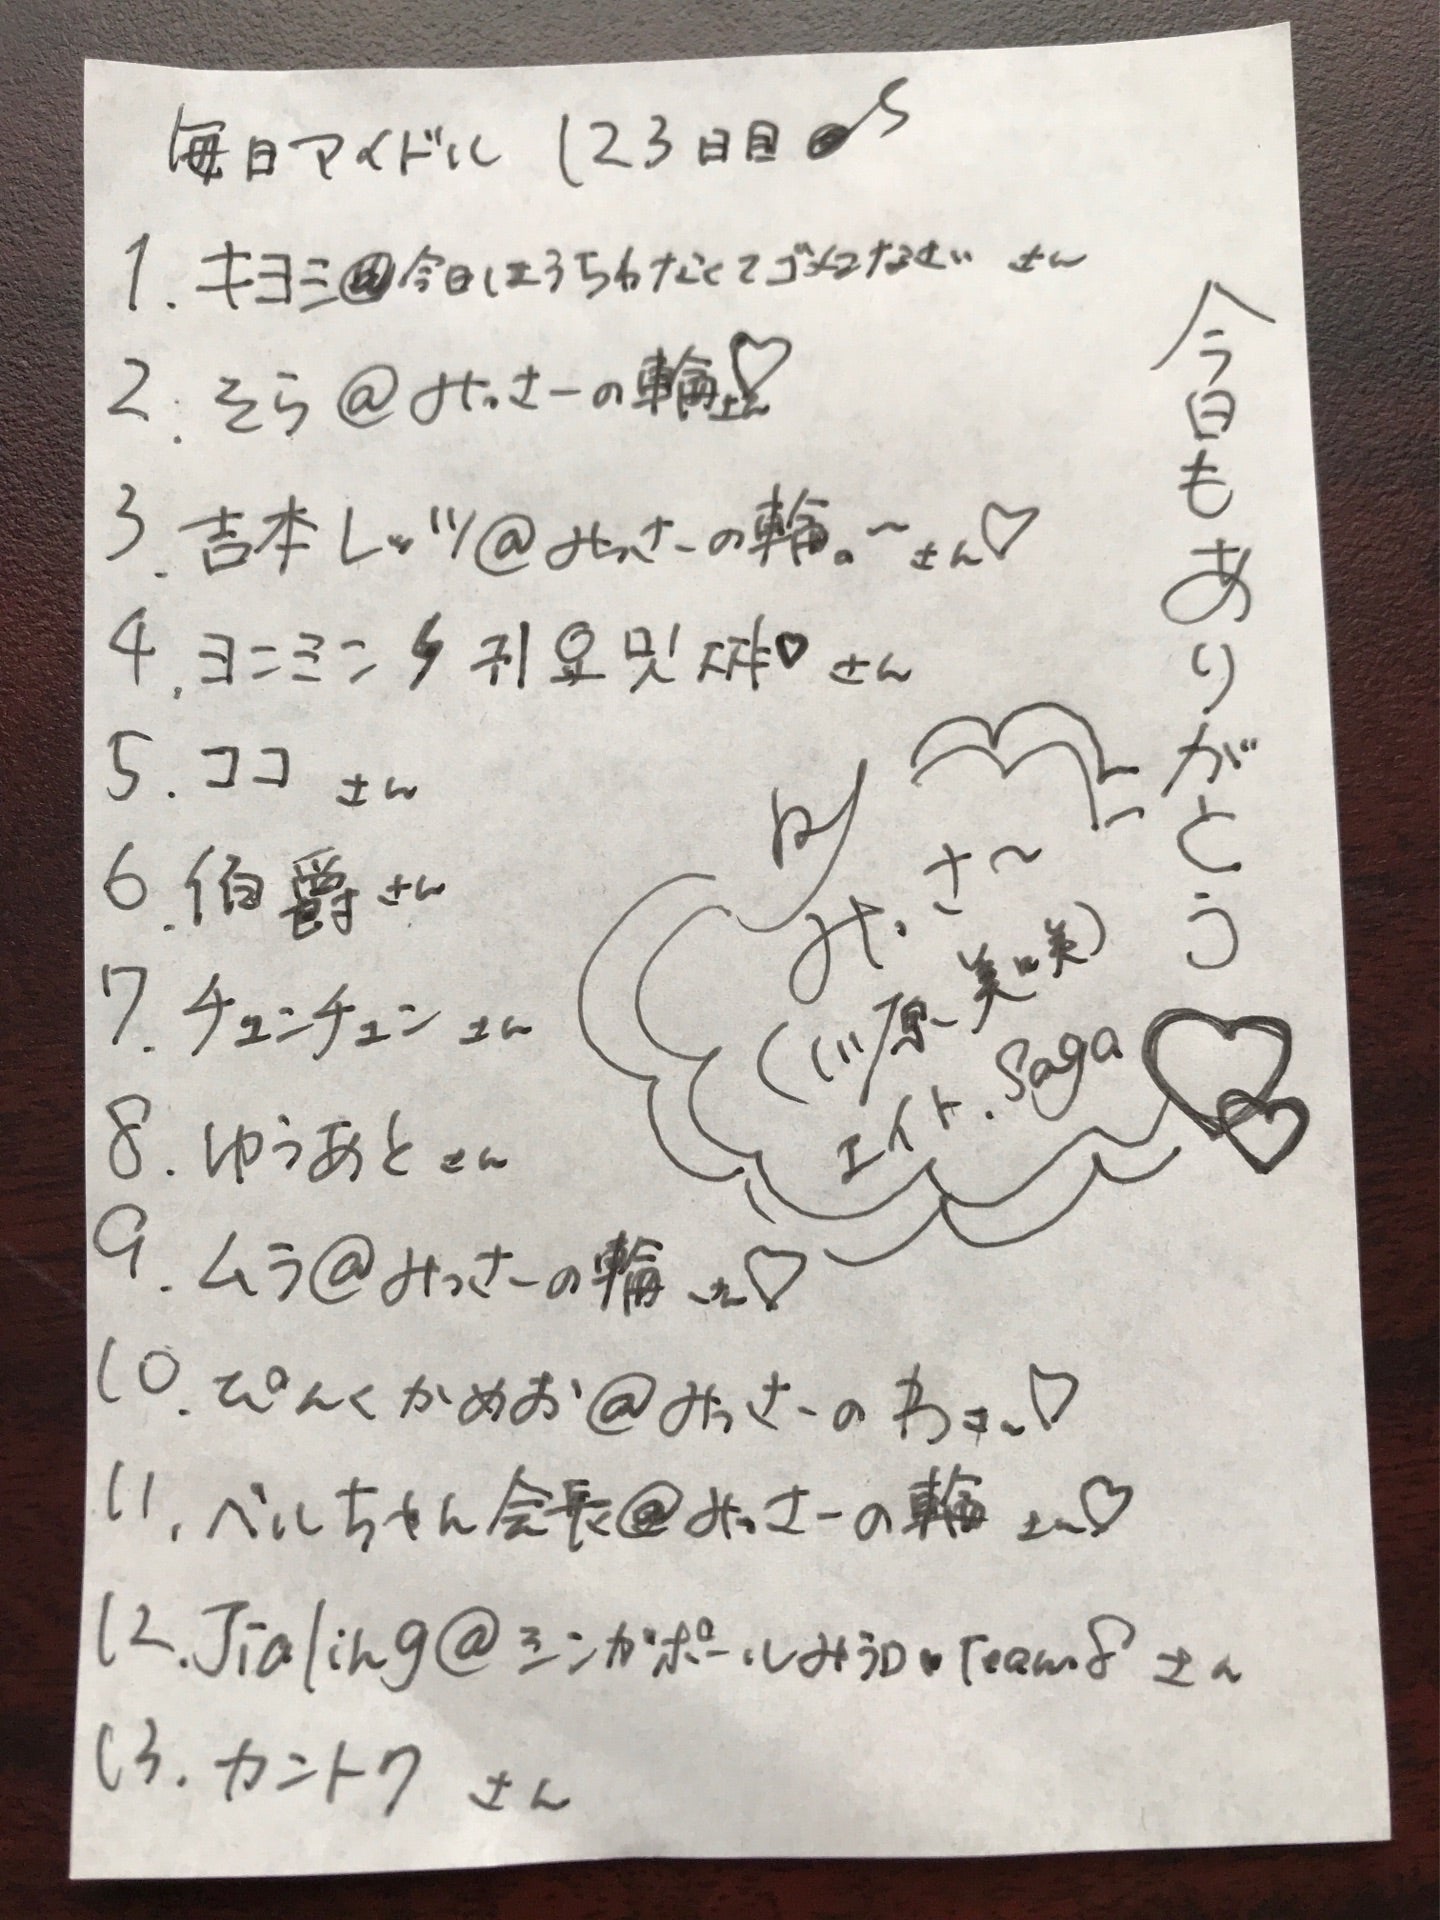 毎日アイドル 123日目♪
1. キヨミ@今日はうちわなくてゴメンなさい さん
2. そら@みっさーの輪さん♡
3. 吉本レッツ@みっさーの輪。〜さん♡
4. ヨンミン
さん
5. ココ さん
6. 伯爵さん
7. チュンチュン さん
8. ゆうあと さん
9. ムラ@みっさーの輪 さん♡
10. ぴんくかめお@みっさーのわさん♡
11. ベルちゃん会長@みっさーの輪 さん♡
12. Jialing@シンガポールみうD Team8 さん
13. カントク さん
今日もありがとう
by
みっさ〜
(川原美咲)
エイト.Saga